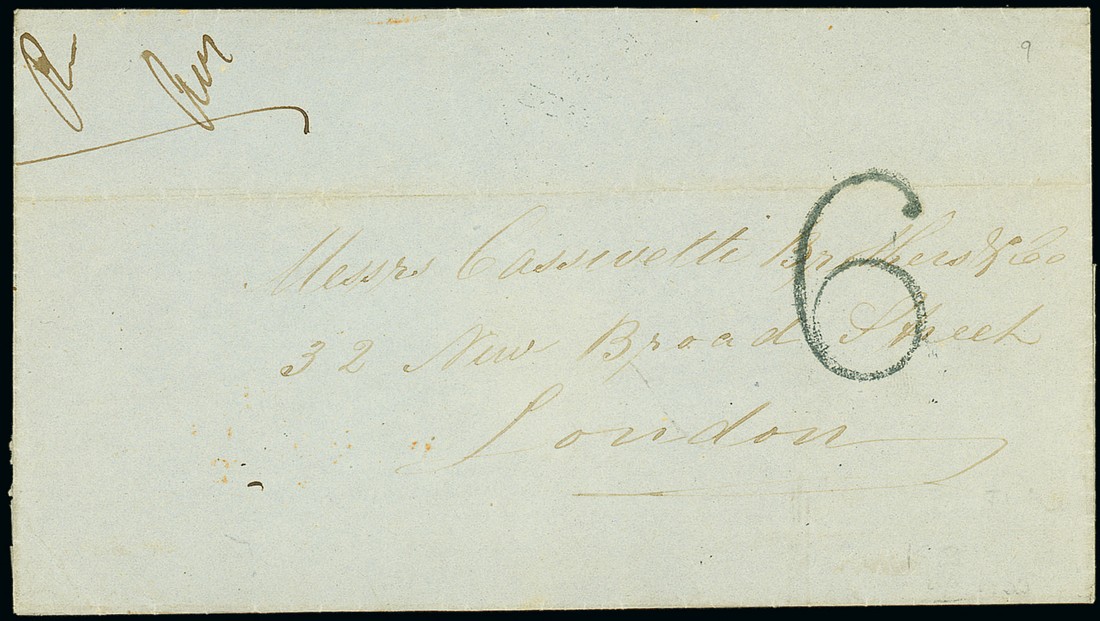 9
6
Messrs Cassvetti Brothers & Co
32 New Broad Street
London